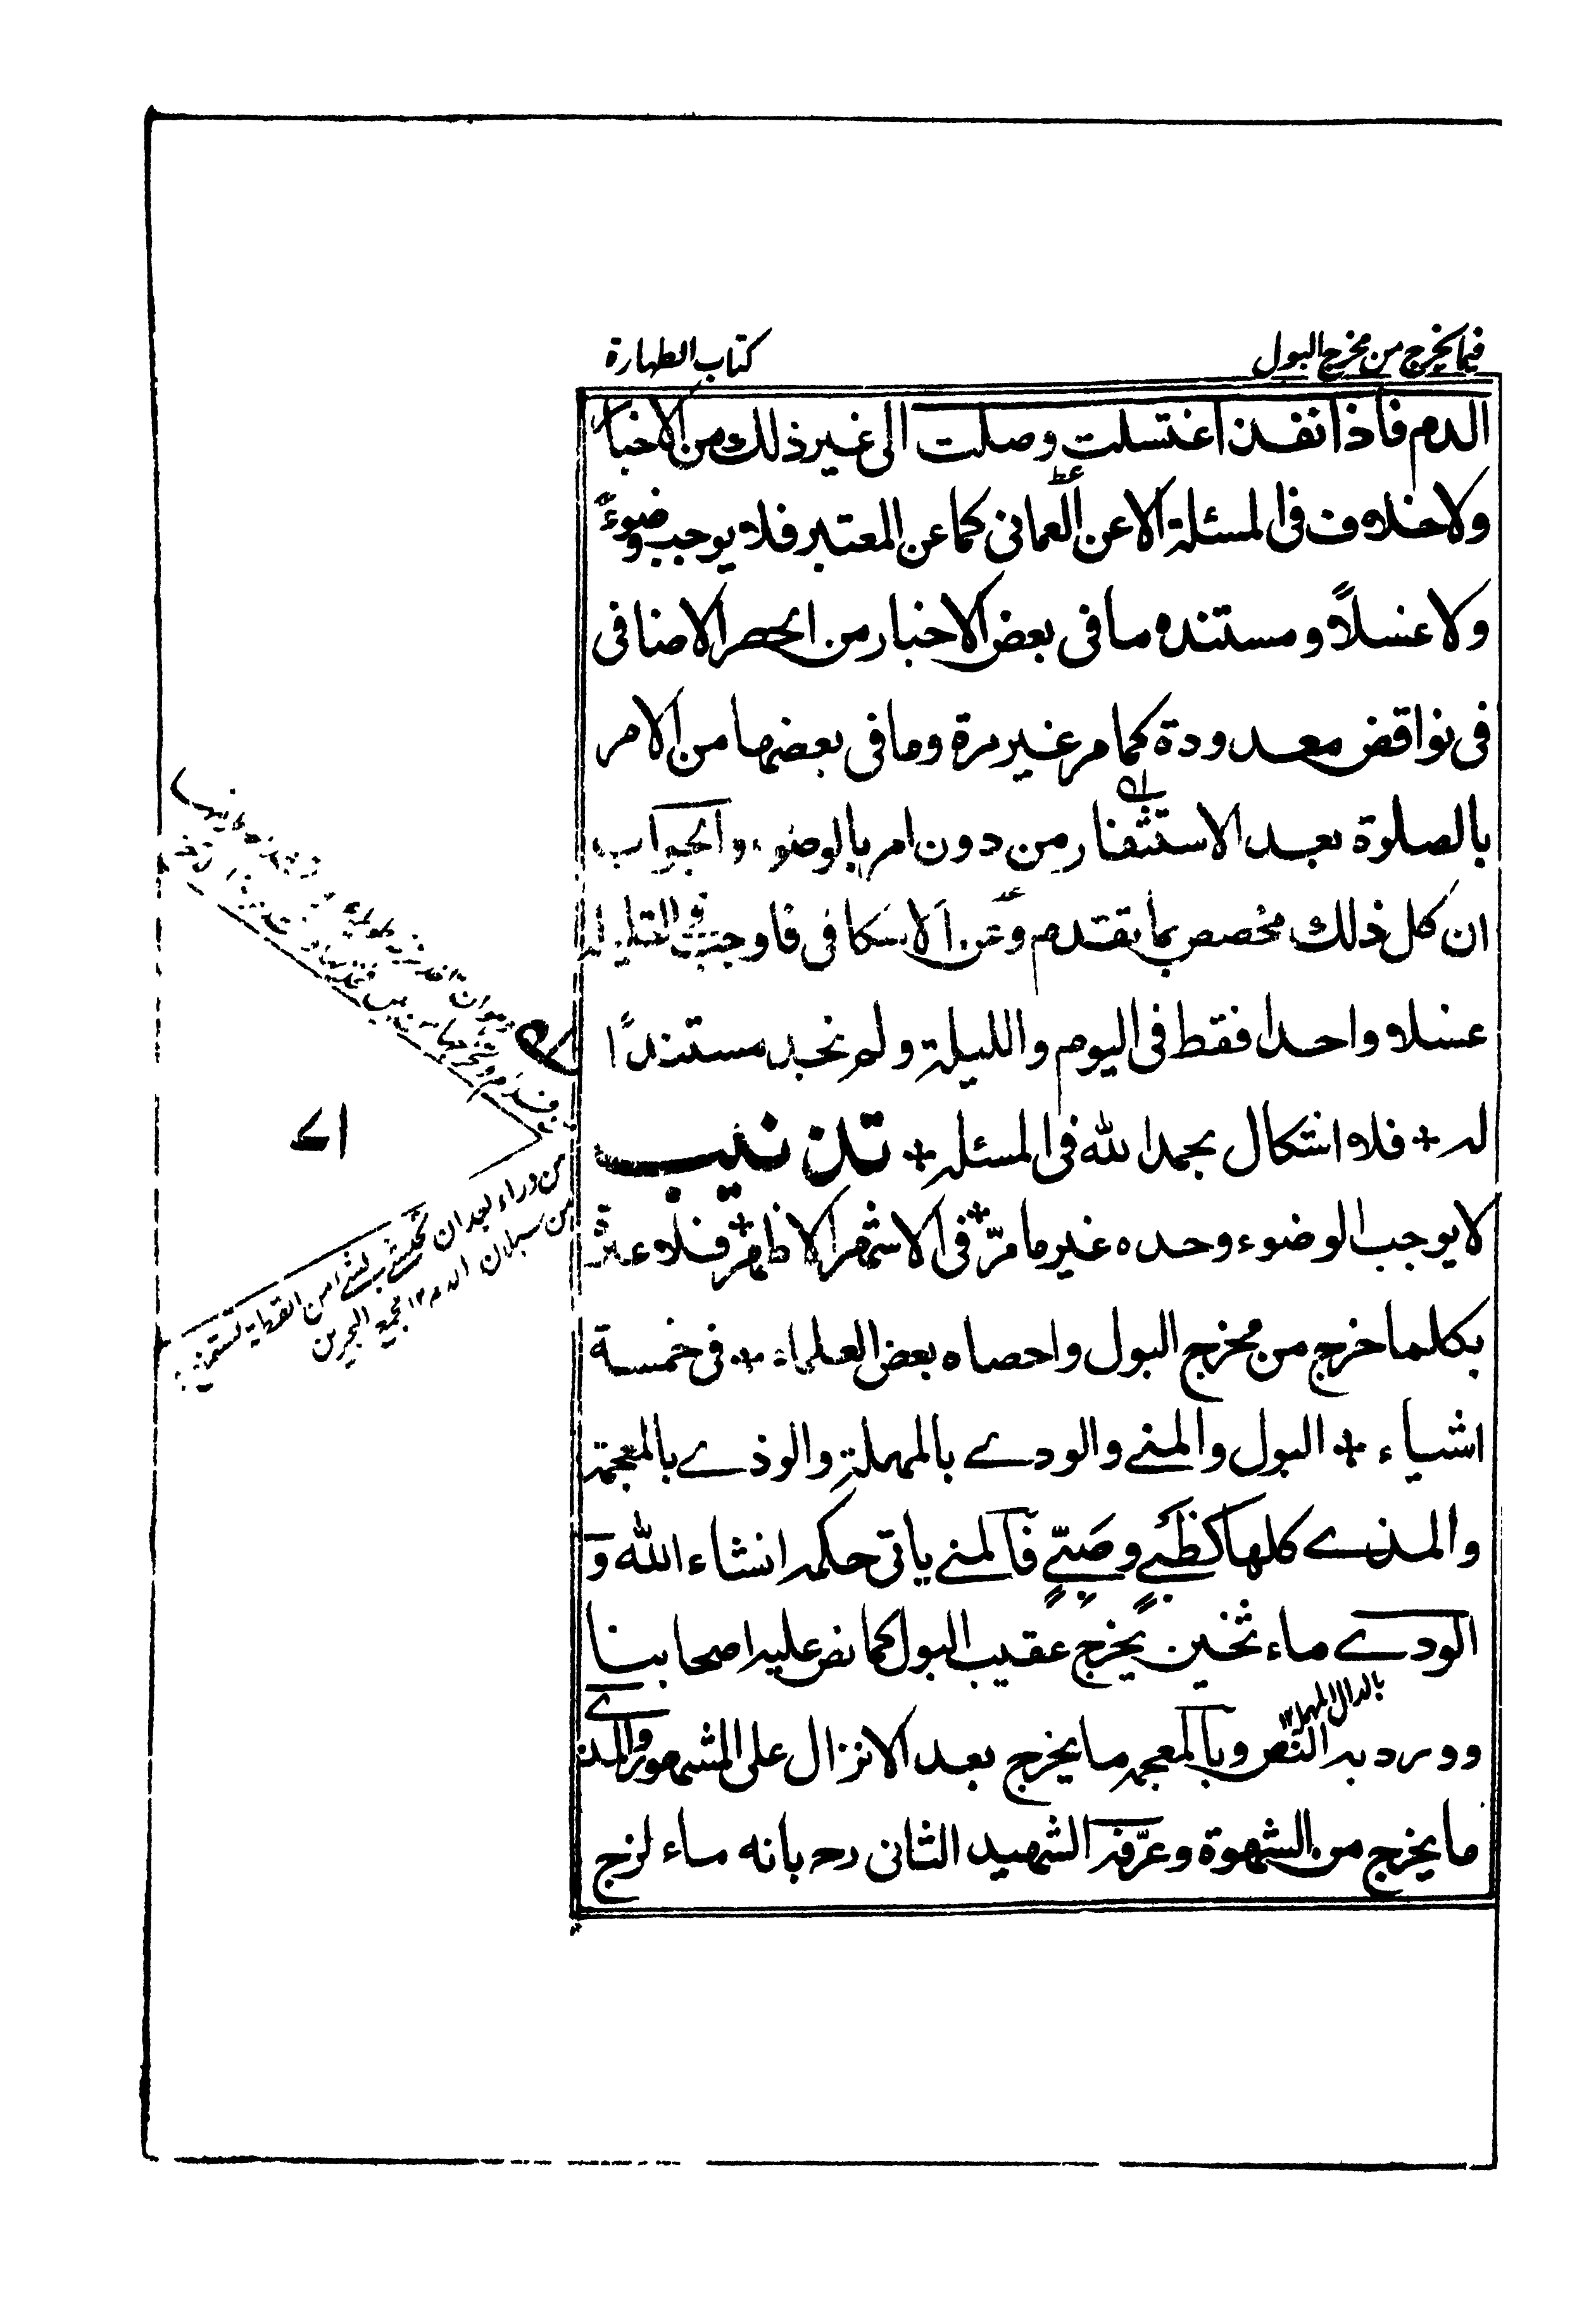 فيما يخرج من مخرج البول
كتاب الطهارة
الدم فاذا نفذ اغتسلت وصلت الى غير ذلك من الاخبار
ولا خلاف فى المسئلة الا عن العمانى كما عن المعتبر فلا يوجب وضوءً
ولا غسلاً ومستنده ما فى بعض الاخبار من الحصر الاضافى
فى نواقض معدودة كما مر غير مرة وما فى بعضها من الامر
بالصلوة بعد الاستثفار من دون امر بالوضوء والجواب
ان كل ذلك مخصص بما تقدم وعن الاسكافى فاوجب فى القليلة
غسلا واحدا فقط فى اليوم والليلة ولم نجد مستندًا
له + فلا اشكال بحمد الله فى المسئلة + تذنيب
لا يوجب الوضوء وحده غير ما مرّ + فى الاشهر الاظهر + فلا عبرة
بكلما خرج من مخرج البول واحصاه بعض العلماء + فى خمسة
اشياء + البول والمنے والودے بالمهملة والوذے بالمعجمة
والمذے كلها كظَبْيٍ وصَبِيٍّ فالمنے ياتى حكمه انشاء الله و
الودے ماء ثخين يخرج عقيب البول كما نص عليه اصحابنا
بالدال المهملة ١٢
وورد به النص وبالمعجمة ما يخرج بعد الانزال على المشهور والمذے
ما يخرج من الشهوة وعرّفه الشهيد الثانى رح بانه ماء لزج
٧١
من وراء بعد ان تحتشے بشے من القطن
من سيلان الدم ١٢ مجمع البحرين